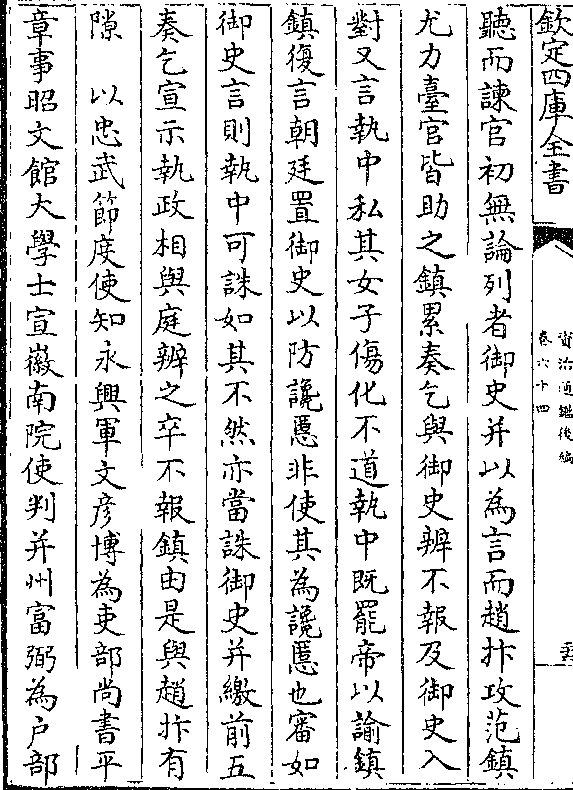 欽定四庫全書
資治通鑑後編
卷六十四
聽而諫官初無論列者御史并以為言而趙抃攻范鎮
尤力臺官皆助之鎮累奏乞與御史辨不報及御史入
對又言執中私其女子傷化不道執中既罷帝以諭鎮
鎮復言朝廷置御史以防讒慝非使其為讒慝也審如
御史言則執中可誅如其不然亦當誅御史并繳前五
奏乞宣示執政相與庭辨之卒不報鎮由是與趙抃有
隙　以忠武節度使知永興軍文彦博為吏部尚書平
章事昭文館大學士宣徽南院使判并州富弼為户部